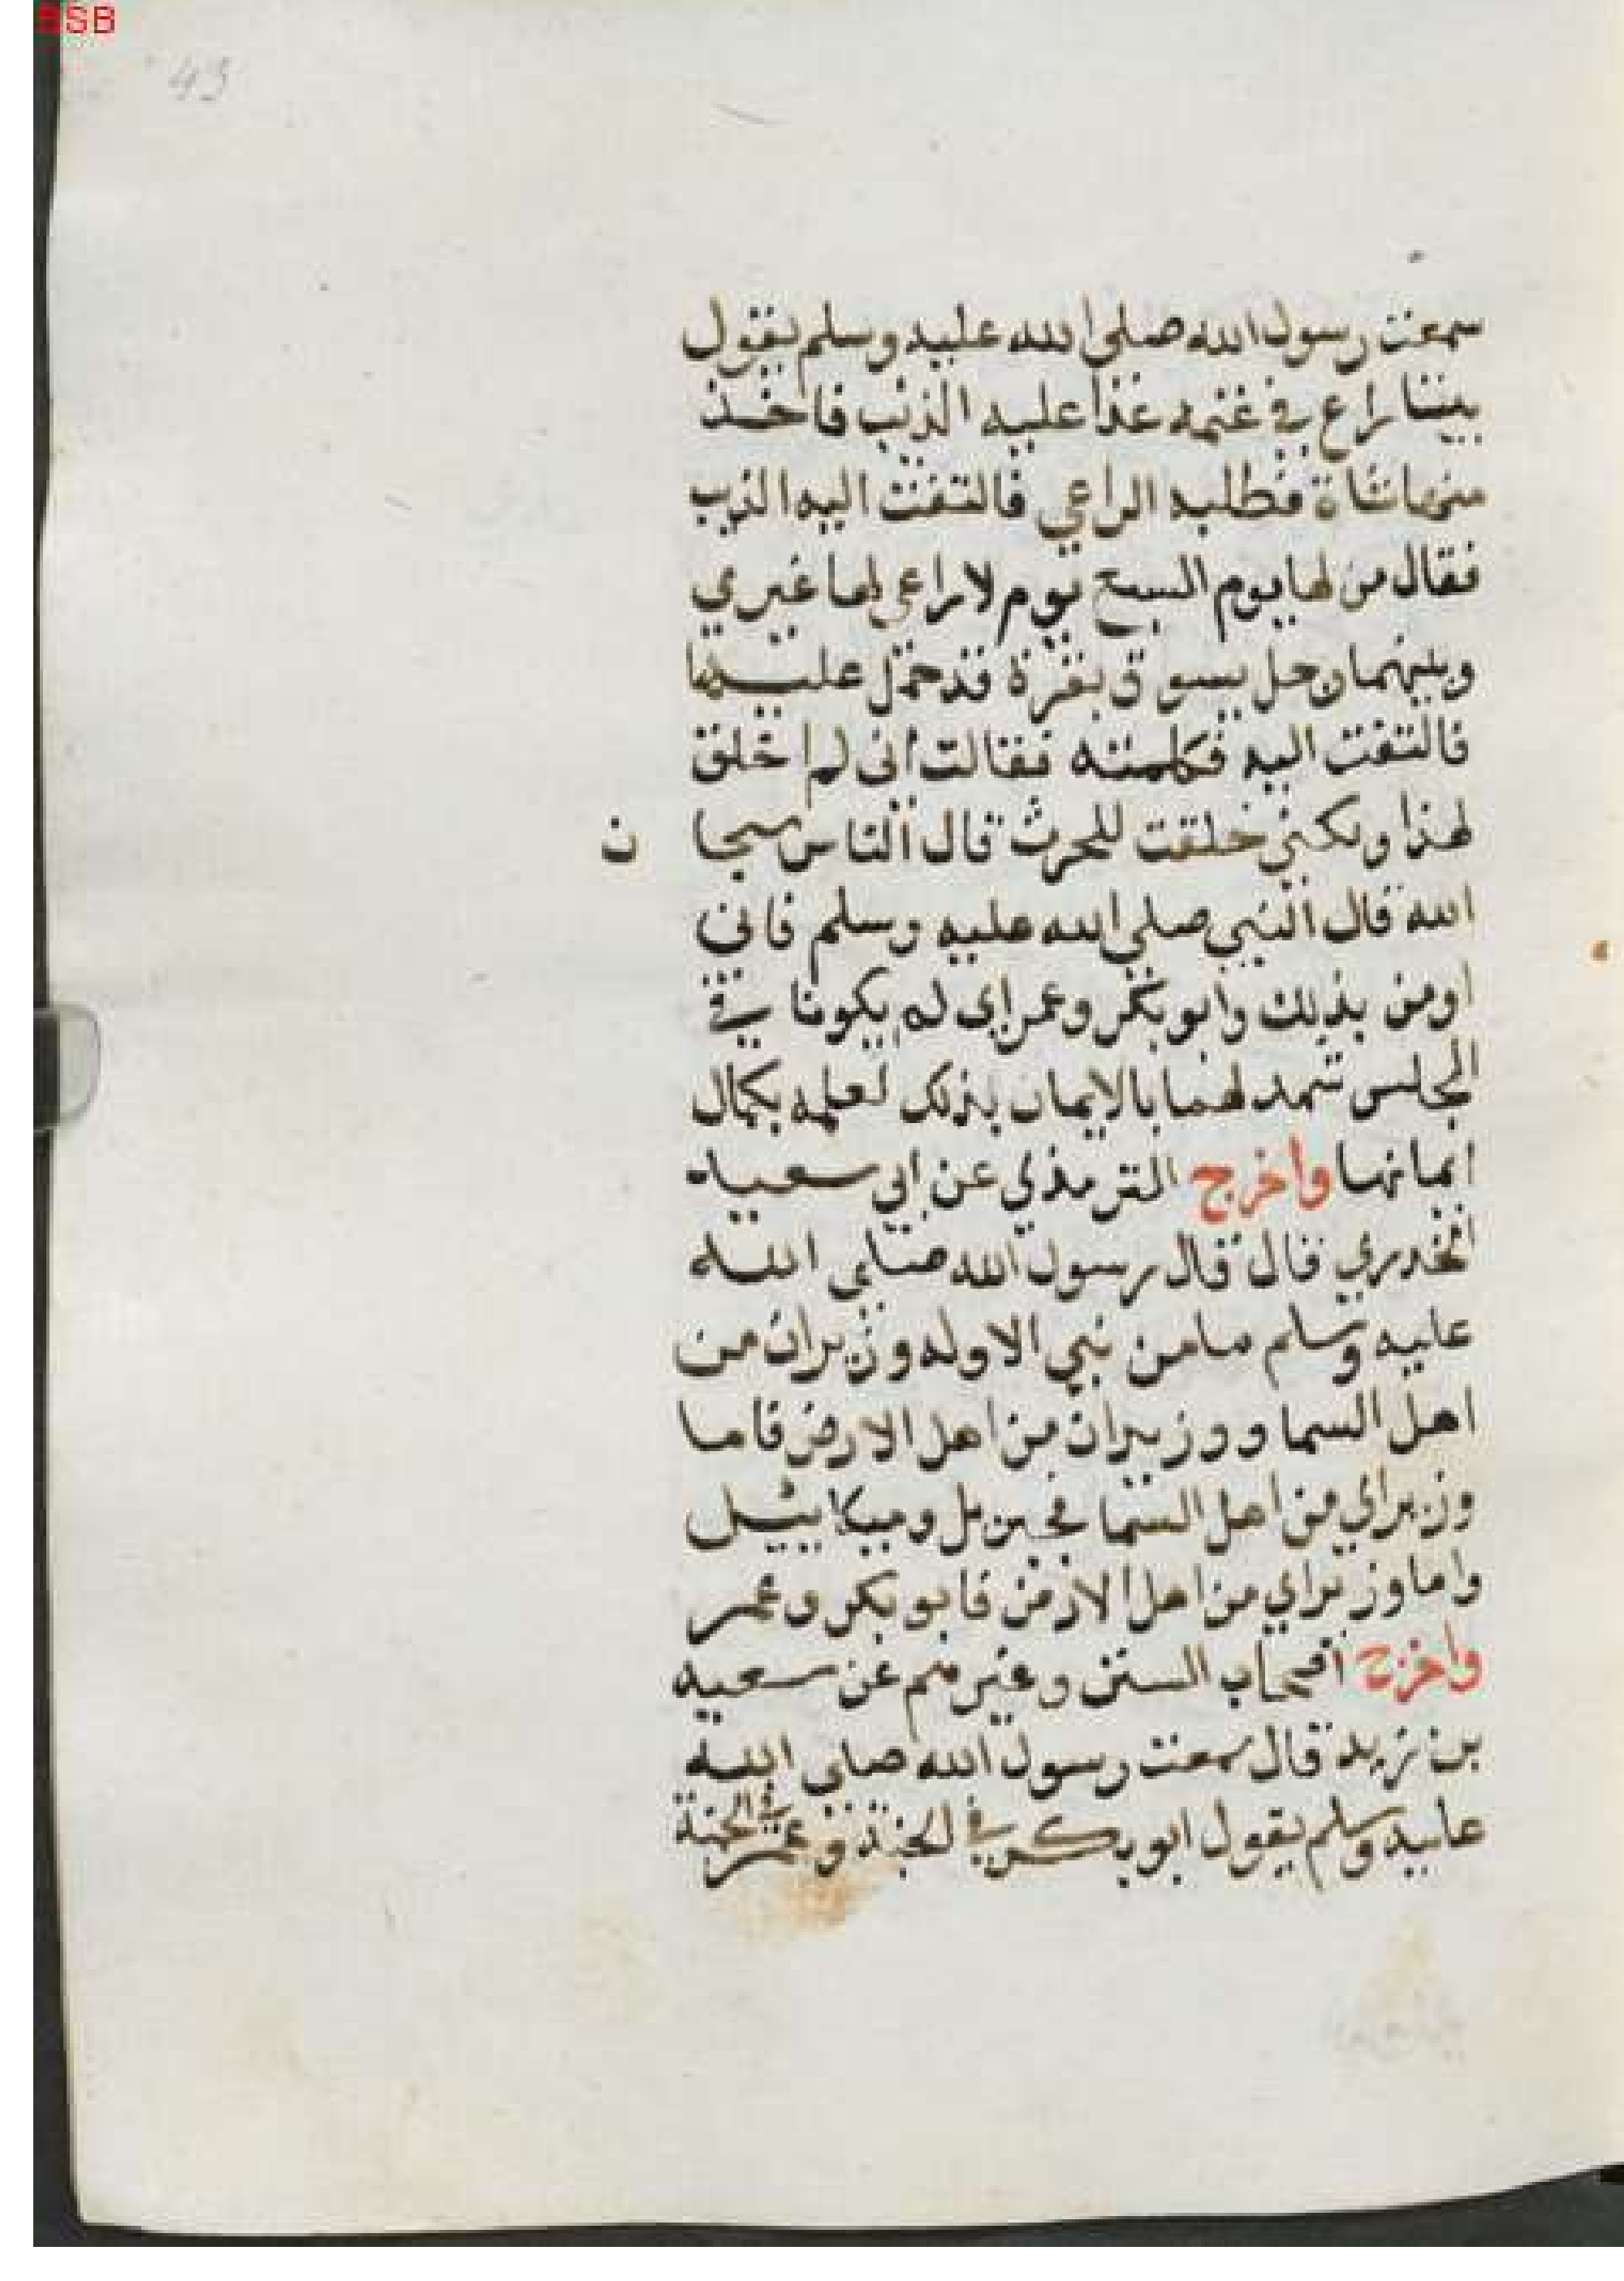 BSB
43
سمعت رسول الله صلى الله عليه وسلم يقول
بينا راع في غنمه عذا عليه الذئب فاخذ
منها شاة فطلبه الراعي فالتفت اليه الذيب
فقال من لها يوم السبع يوم لا راعي لها غيري
وبينما رجل يسوق بقرة قد حمل عليها
فالتفت اليه فكلمته فقالت اني لم اخلق
لهذا ولكني خلقت للحرث قال الناس سبحا ن
الله قال النبي صلى الله عليه وسلم فاني
اومن بذلك وابو بكر وعمر اي لم يكونا في
المجلس شهد لهما بالايمان بذلك لعلمه بكمال
ايمانهما واخرج الترمذي عن ابي سعيد
الخدري قال قال رسول الله صلى الله
عليه وسلم ما من نبي الا وله وزيران من
اهل السما ووزيران من اهل الارض فاما
وزيراي من اهل السما فجبريل وميكائيل
واما وزيراي من اهل الارض فابو بكر وعمر
واخرج اصحاب السنن وغيرهم عن سعيد
بن زيد قال سمعت رسول الله صلى الله
عليه وسلم يقول ابو بكر في الجنة وعمر في الجنة